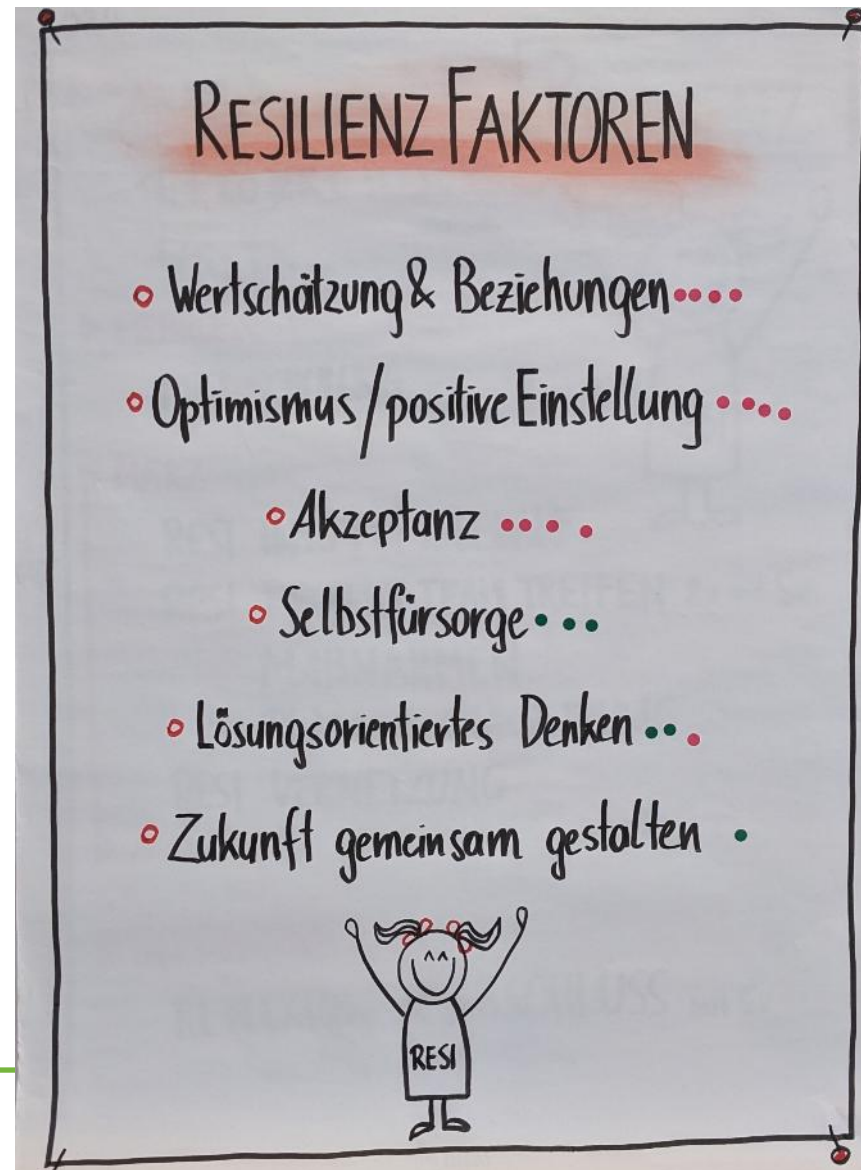 RESILIENZ FAKTOREN
Wertschätzung & Beziehungen
Optimismus / positive Einstellung
Akzeptanz
Selbstfürsorge
Lösungsorientiertes Denken
Zukunft gemeinsam gestalten
RESI